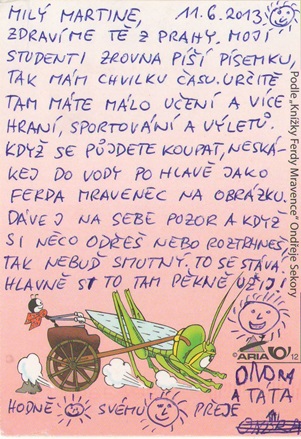 MILÝ MARTINE, 11.6.2013
ZDRAVÍME TĚ Z PRAHY. MOJI
STUDENTI ZROVNA PÍŠÍ PÍSEMKU,
TAK MÁM CHVILKU ČASU. URČITĚ
TAM MÁTE MÁLO UČENÍ A VÍCE
HRANÍ, SPORTOVÁNÍ A VÝLETŮ.
KDYŽ SE PŮJDETE KOUPAT, NESKÁ-
KEJ DO VODY PO HLAVĚ JAKO
FERDA MRAVENEC NA OBRÁZKU.
DÁVEJ NA SEBE POZOR A KDYŽ
SI NĚCO ODŘEŠ NEBO ROZTRHNEŠ,
TAK NEBUĎ SMUTNÝ. TO SE STÁVÁ.
HLAVNĚ SI TO TAM PĚKNĚ UŽIJ!
Podle „Knížky Ferdy Mravence“ Ondřeje Sekory
© ARIA 12
ONDRA
A TÁTA
HODNĚ SVÉMU PŘEJE